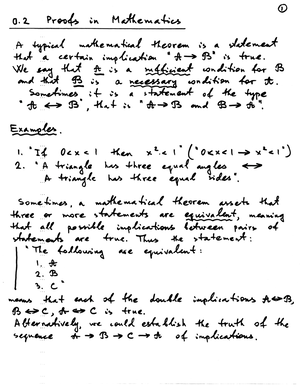 ①
0.2 Proofs in Mathematics
A typical mathematical theorem is a statement
that a certain implication "A → B" is true.
We say that A is a sufficient condition for B
and that B is a necessary condition for A.
Sometimes it is a statement of the type
"A ↔ B", that is "A → B and B → A".
Examples.
1. "If 0<x<1 then x²<1" ("0<x<1 → x²<1")
2. "A triangle has three equal angles ↔
A triangle has three equal sides".
Sometimes, a mathematical theorem asserts that
three or more statements are equivalent, meaning
that all possible implications between pairs of
statements are true. Thus the statement:
"The following are equivalent:
1. A
2. B
3. C"
means that each of the double implications A↔B,
B↔C, A↔C is true.
Alternatively, we could establish the truth of the
sequence A → B → C → A of implications.